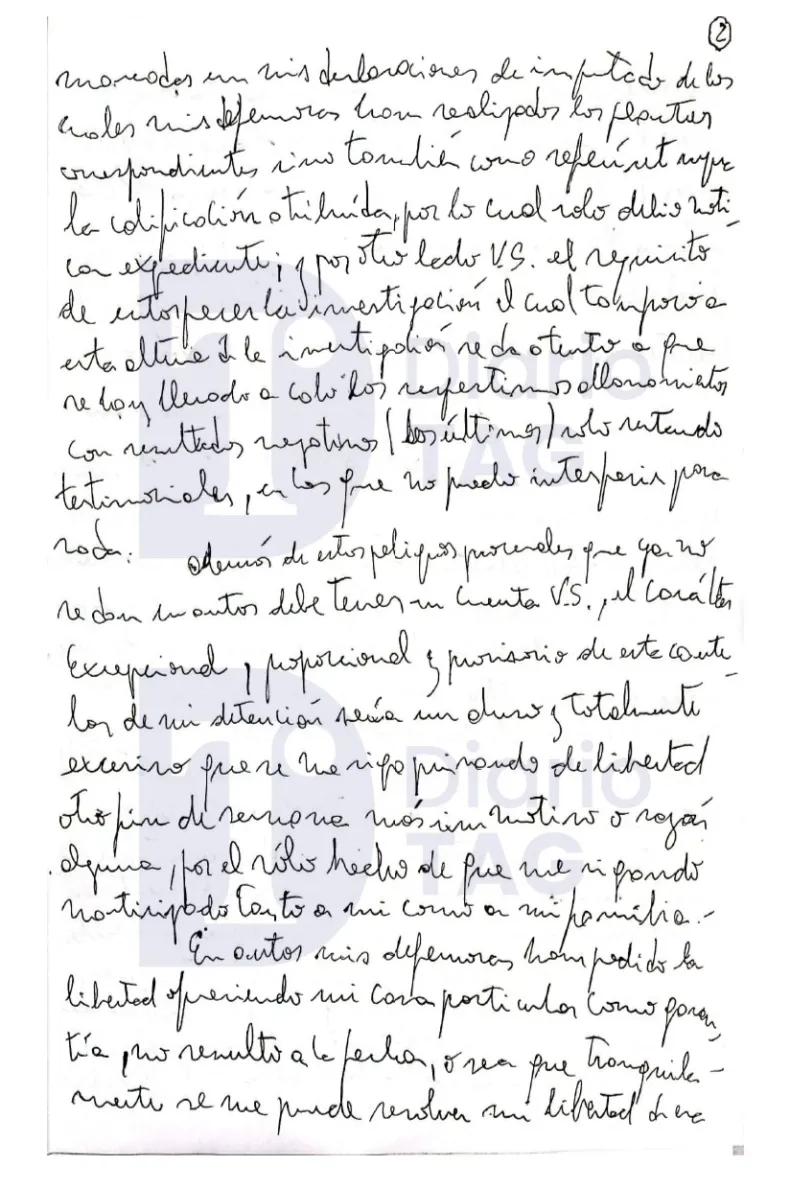 ②
marcadas en mis declaraciones de imputado de los
cuales mis defensoras han realizados los
correspondientes, sino también como
la calificación atribuída, por lo cual solo
expediente; y por otro lado V.S. el requisito
de entorpecer la investigación el cual tampoco a
esta altura de la investigación se da atento a que
se hay llevado a cabo los allanamientos
con resultados negativos (los últimos) solo restando
testimoniales, en las que no puedo interferir para
nada.
Además de estos peligros procesales que ya no
se dan en autos debe tener en cuenta V.S., el carácter
Excepcional, proporcional y provisorio de esta caute
lar de mi detención sería un duro y totalmente
excesivo que se me siga privando de libertad
otro fin de semana más sin motivo o razón
alguna, por el sólo hecho de que me
tanto a mi como a mi familia.-
En autos mis defensoras han pedido la
libertad ofreciendo mi casa particular como garan
tía, no resulto a la fecha, o sea que tranquila-
mente se me puede resolver mi libertad
Diario
TAG
Diario
TAG